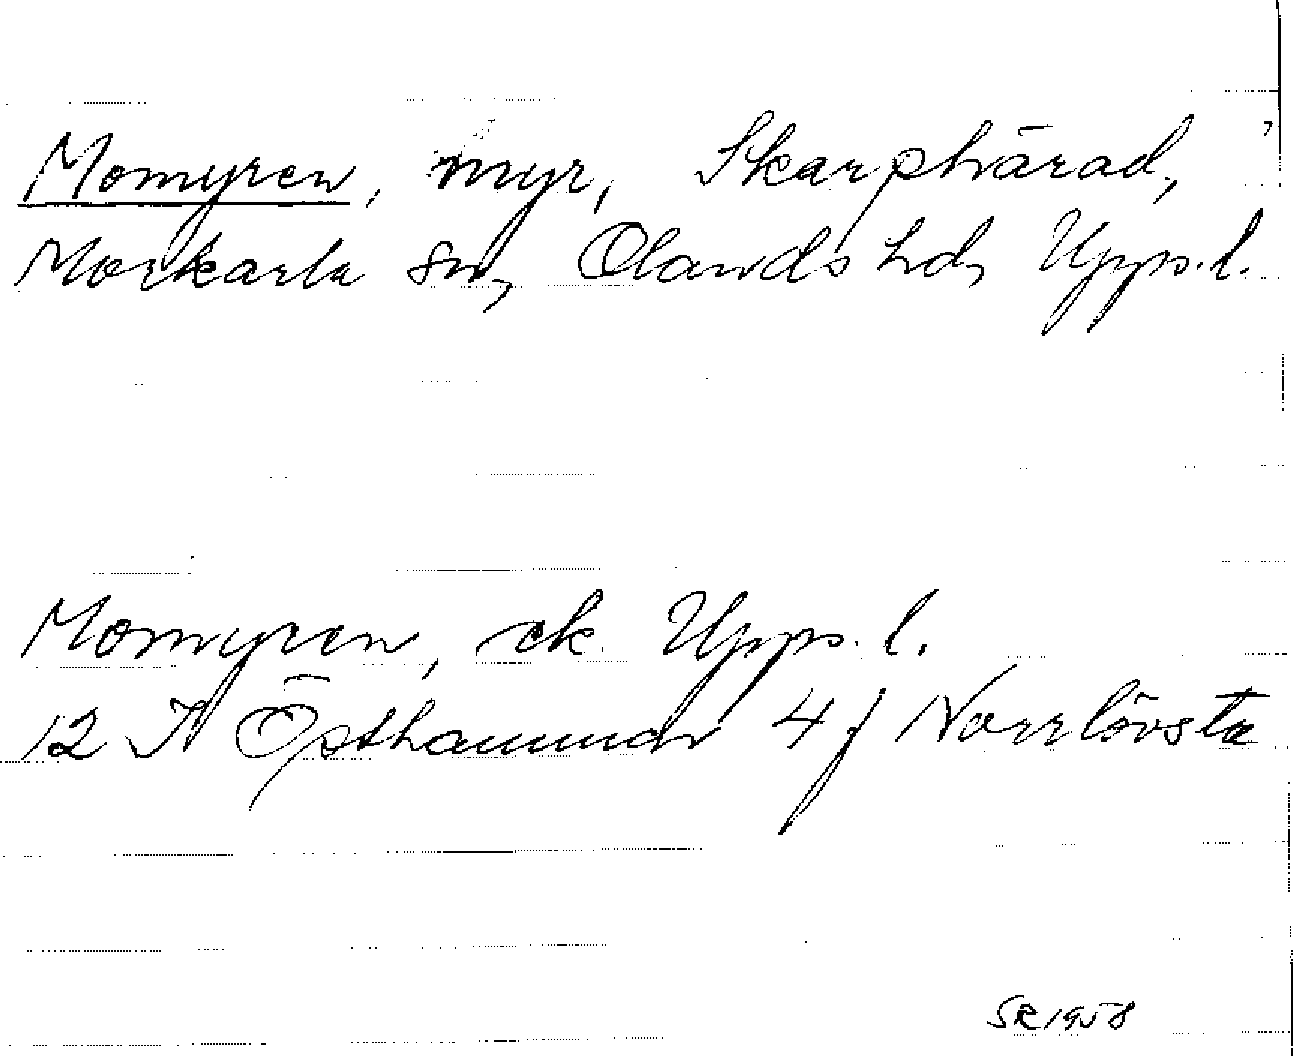 Momyren, myr, Skarphärad,
Morkarla sn, Olands hd, Upps. l.
Momyren, ek. Upps. l.
12 I Östhammar 4 j Norrlövsta
SR 1958